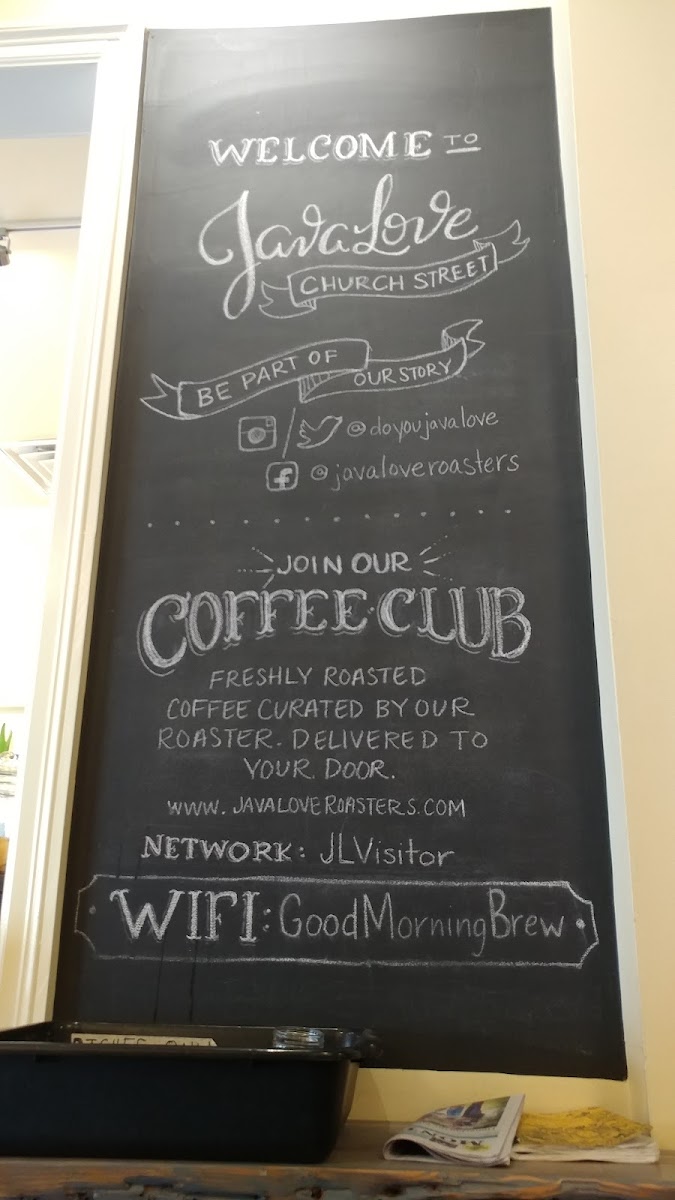 WELCOME TO
JavaLove
CHURCH STREET
BE PART OF
OUR STORY
@doyoujavalove
@javaloveroasters
JOIN OUR
COFFEE CLUB
FRESHLY ROASTED
COFFEE CURATED BY OUR
ROASTER. DELIVERED TO
YOUR DOOR.
WWW.JAVALOVEROASTERS.COM
NETWORK: JLVisitor
WIFI: GoodMorningBrew